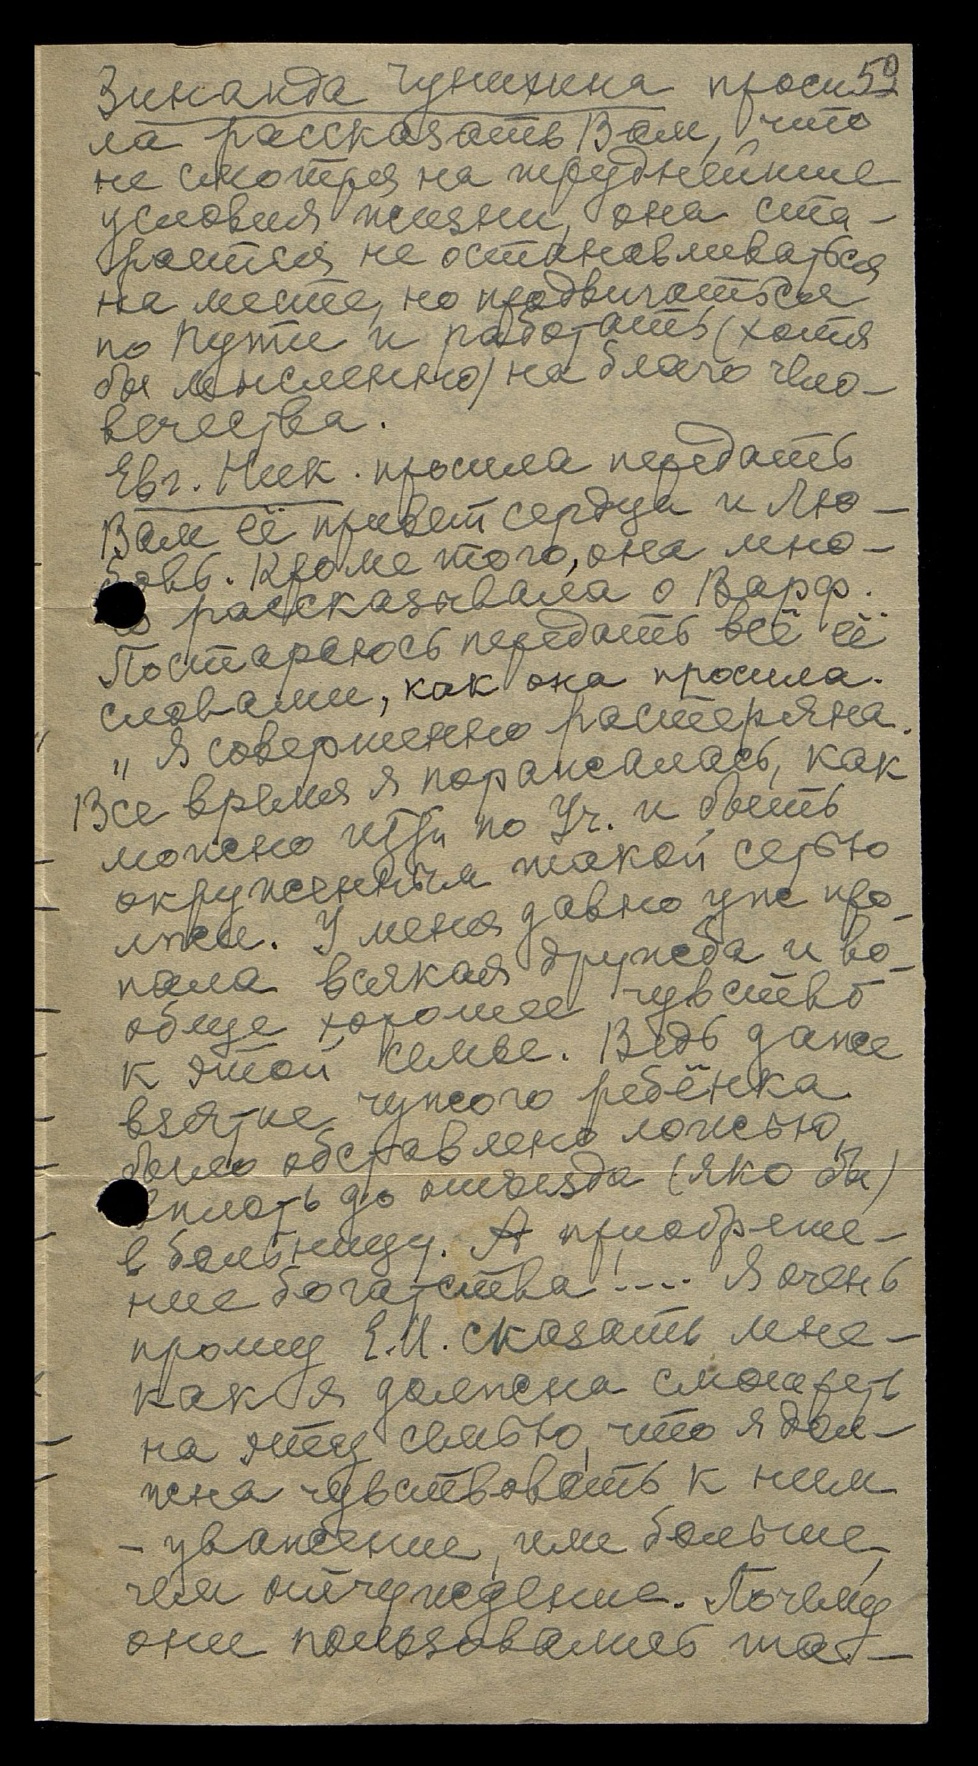 Зинаида Чунихина проси- 59
ла рассказать Вам, что
не смотря на труднейшие
условия жизни, она ста-
рается не останавливаться
на месте, но продвигаться
по Пути и работать (хотя
бы мысленно) на благо чело-
вечества.
Евг. Ник. просила передать
Вам её привет сердца и Лю-
бовь. Кроме того, она мно-
го рассказывала о Варф.
Постараюсь передать всё её
словами, как она просила.
„Я совершенно растеряна.
Все время я поражалась, как
можно идти по Уч. и быть
окруженным такой сетью
лжи. У меня давно уже про-
пала всякая дружба и во-
обще хорошее чувство
к этой семье. Ведь даже
взятие чужого ребёнка
было обставлено ложью,
вплоть до отъезда (яко бы)
в больницу. А приобрете-
ние богатства!.... Я очень
прошу Е.И. сказать мне -
как я должна смотреть
на эту семью, что я дол-
жна чувствовать к ним
- уважение, или больше,
чем отчуждение. Почему
они пользовались та-